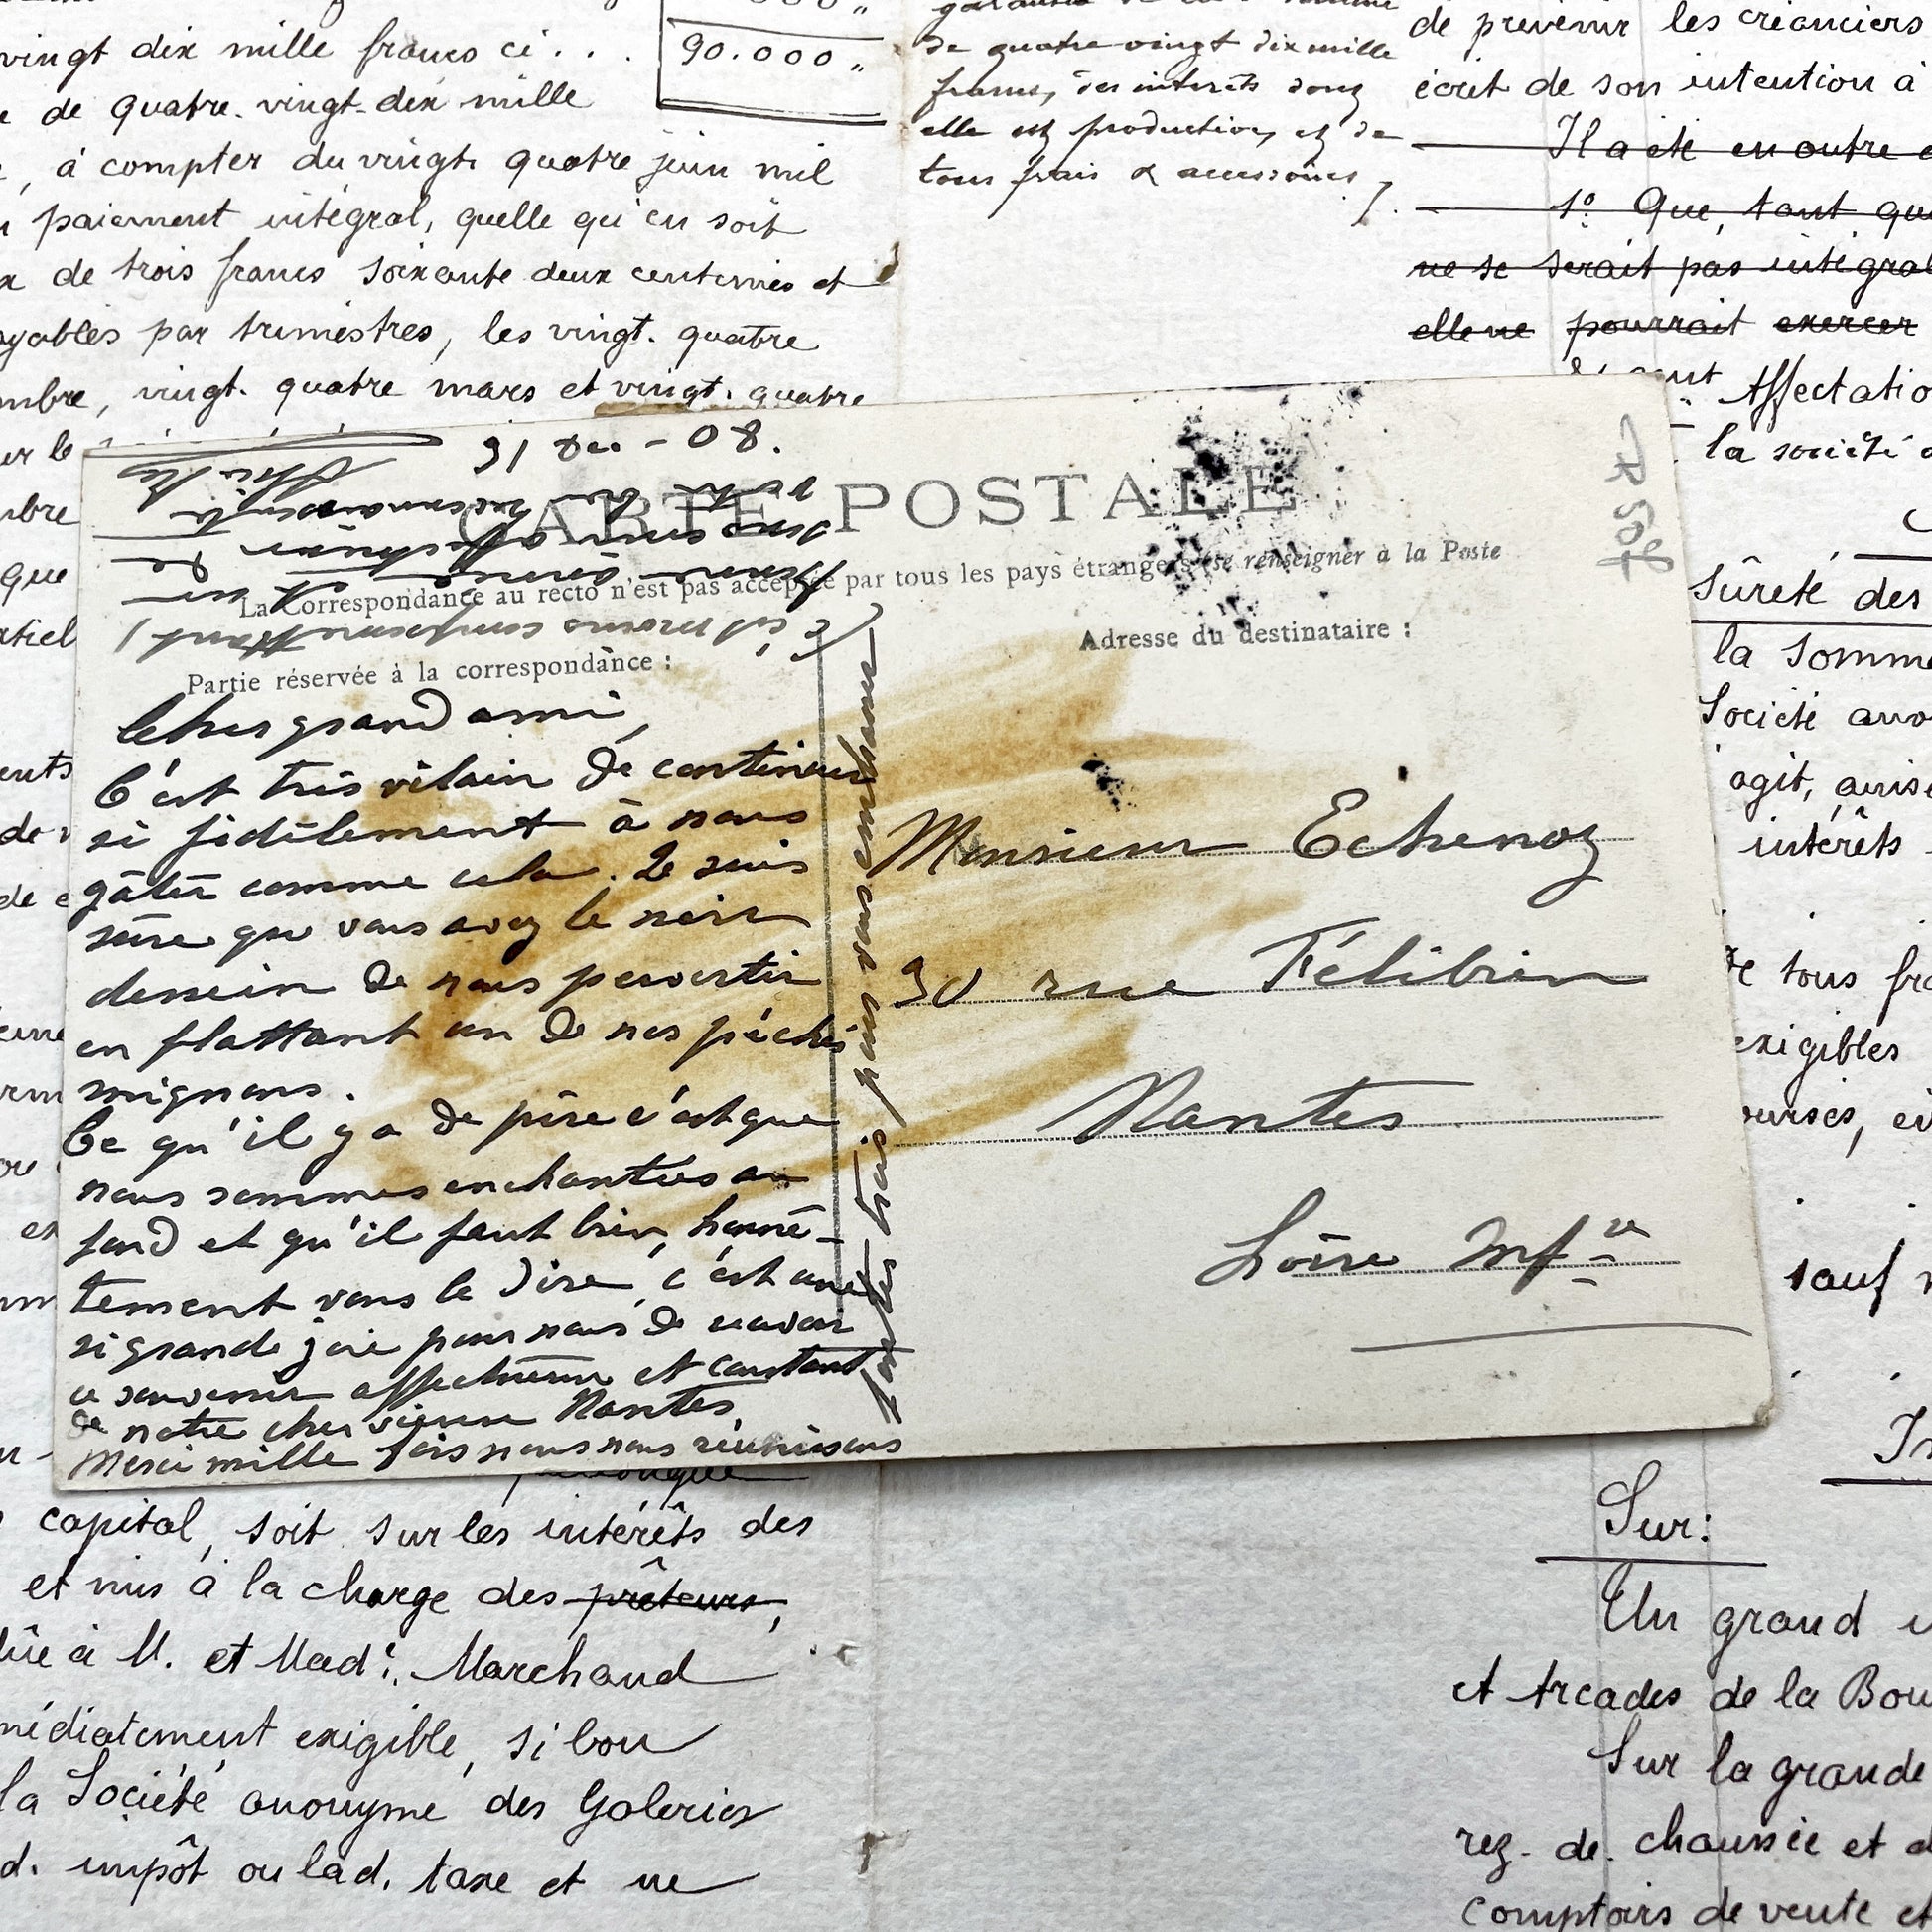 vingt dix mille francs ci . . .
90.000 "
de quatre. vingt. dix mille
, à compter du vingt quatre juin mil
paiement intégral, quelle qu'en soit
de trois francs soixante deux centimes et
par trimestres, les vingt. quatre
mbre, vingt. quatre mars et vingt. quatre
de quatre vingt dix mille
francs, des intérêts dont
elle est production, et de
tous frais & accessoires
de prévenir les créanciers
écrit de son intention à
Il a été en outre
1º. Que, tant que
ne se serait pas intégral
elle ne pourrait exercer
Affectatio
la société
sûreté des
la somme
Société ano
agit,
intérêts
tous fra
exigibles
sauf
31 Dec - 08.
CARTE POSTALE
La Correspondance au recto n'est pas acceptée par tous les pays étrangers (se renseigner à la Poste
Partie réservée à la correspondance :
Adresse du destinataire :
Cher grand ami,
C'est très vilain de continuer
si fidèlement à nous
gâter comme cela. Je suis
sûre que vous avez le noir
dessein de nous pervertir
en flattant un de nos péchés
mignons.
Ce qu'il y a de pire c'est que
nous sommes enchantées au
fond et qu'il faut bien, honnê-
tement vous le dire, c'est une
si grande joie pour nous de
ce souvenir affectueux et constant
de notre cher vieux Nantes.
Merci mille fois nous nous réunissons
toutes trois pour vous embrasser
Monsieur Echenoz
30 rue Félibien
Nantes
Loire Infre
capital, soit sur les intérêts des
et mis à la charge des prêteurs,
à M. et Made. Marchand
médiatement exigible, si bon
la Société anonyme des Galeries
d. impôt ou lad. taxe et ne
Sur:
Un grand
et Arcades de la Bou
Sur la grande
rez. de. chaussée et
comptoirs de vente et